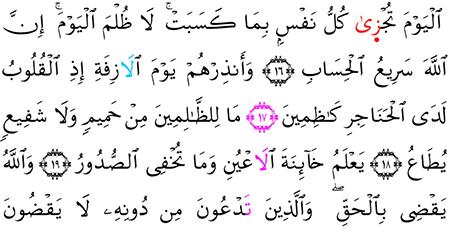 ٱلْيَوْمَ تُجْزِىٰ كُلُّ نَفْسٍۭ بِمَا كَسَبَتْ ۚ لَا ظُلْمَ ٱلْيَوْمَ ۚ إِنَّ
ٱللَّهَ سَرِيعُ ٱلْحِسَابِ ١٦ وَأَنذِرْهُمْ يَوْمَ ٱلَازِفَةِ إِذِ ٱلْقُلُوبُ
لَدَى ٱلْحَنَاجِرِ كَٰظِمِينَ ١٧ مَا لِلظَّٰلِمِينَ مِنْ حَمِيمٍ وَلَا شَفِيعٍ
يُطَاعُ ١٨ يَعْلَمُ خَآئِنَةَ ٱلَاعْيُنِ وَمَا تُخْفِى ٱلصُّدُورُ ١٩ وَٱللَّهُ
يَقْضِى بِٱلْحَقِّ ۖ وَٱلَّذِينَ تَدْعُونَ مِن دُونِهِۦ لَا يَقْضُونَ